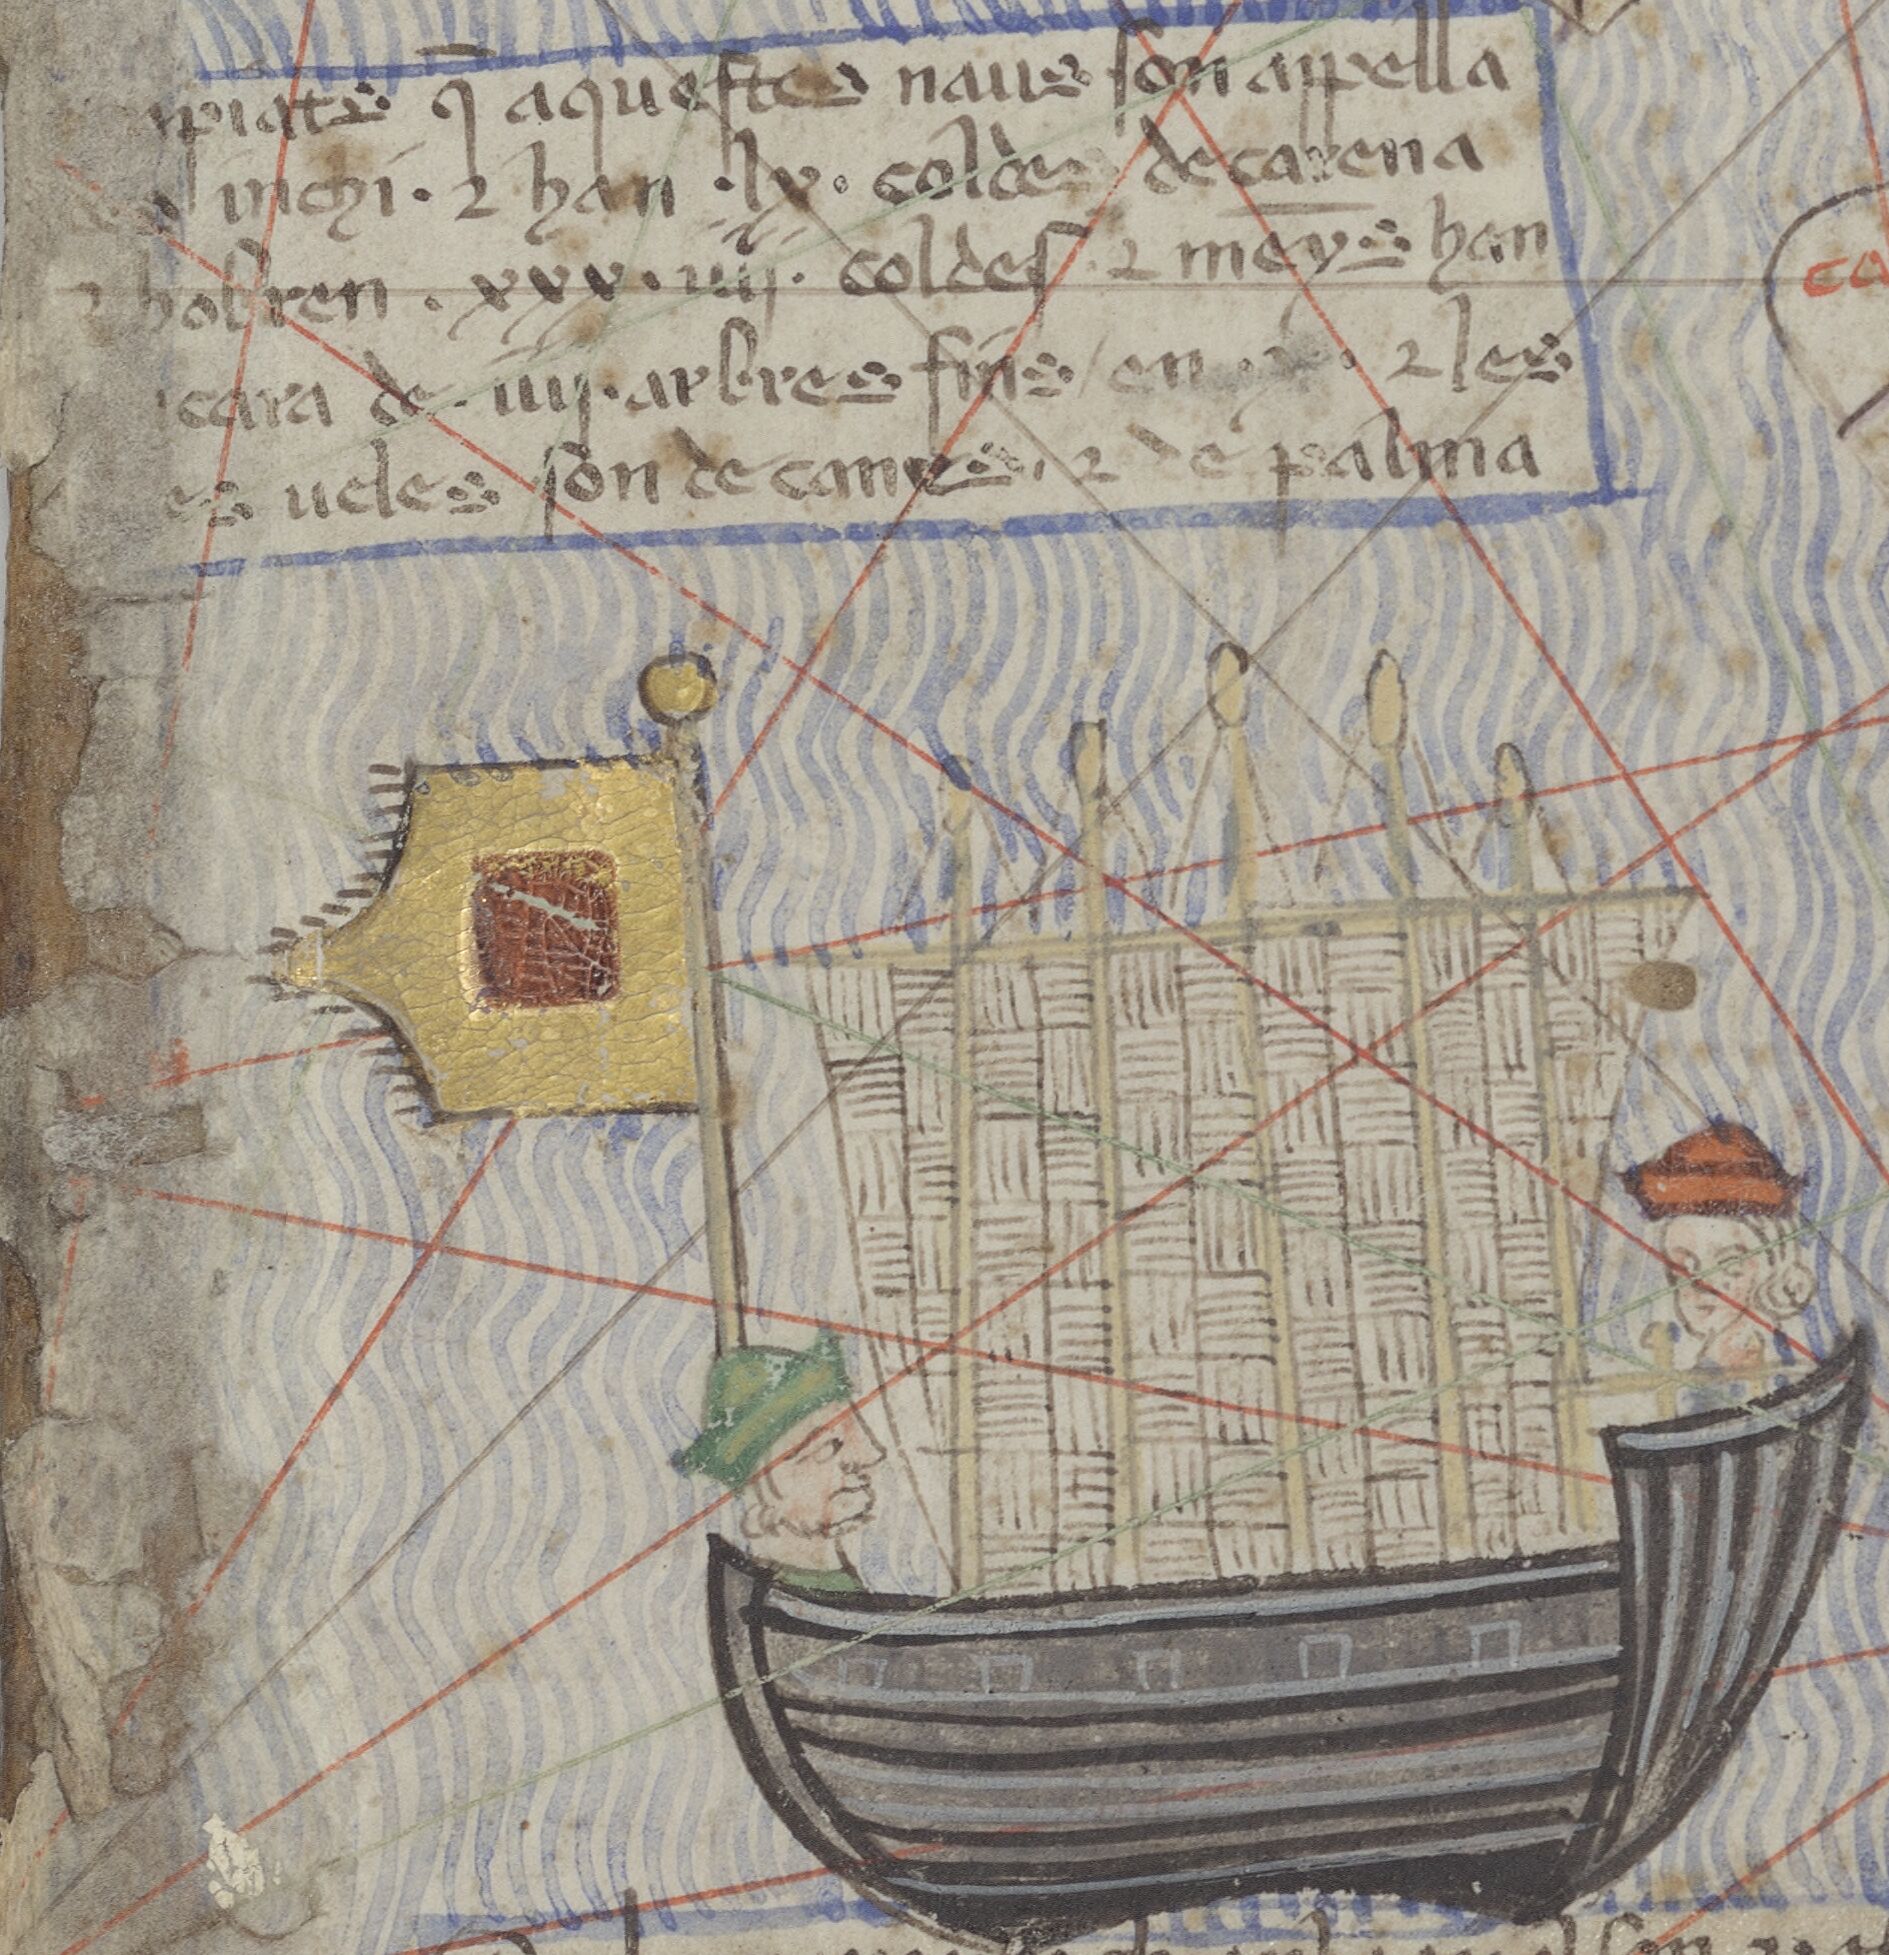 apiats q̄ aquestes naus son appella
inchi · ⁊ han · lx · coldes de carena
⁊ hobren · xxxiiij · coldes ⁊ meys han
cara de · iiij · arbres fins en · x · ⁊ les
es ueles son de canes · ⁊ de palma
ca